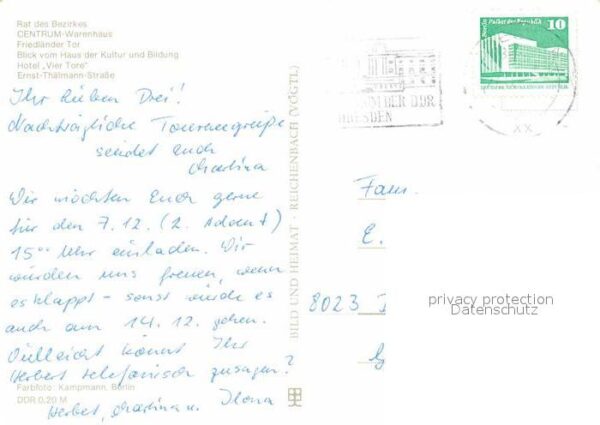 Rat des Bezirkes
CENTRUM-Warenhaus
Friedländer Tor
Blick vom Haus der Kultur und Bildung
Hotel „Vier Tore"
Ernst-Thälmann-Straße
Ihr lieben Drei!
Nachträgliche Tourengrüße
sendet Euch
Martina
Wir möchten Euch gerne
für den 7.12. (2. Advent)
15⁰⁰ Uhr einladen. Wir
würden uns freuen, wenn
es klappt - sonst würde es
auch am 14.12. gehen.
Vielleicht könnt Ihr
Herbert telefonisch zusagen?
Farbfoto: Kampmann, Berlin
DDR 0,20 M
Herbert, Martina u. Ilona
BILD UND HEIMAT · REICHENBACH (VOGTL)
DER DDR
DRESDEN
Berlin, Palast der Republik
10
DEUTSCHE DEMOKRATISCHE REPUBLIK
XX
Fam.
E.
8023
privacy protection
Datenschutz